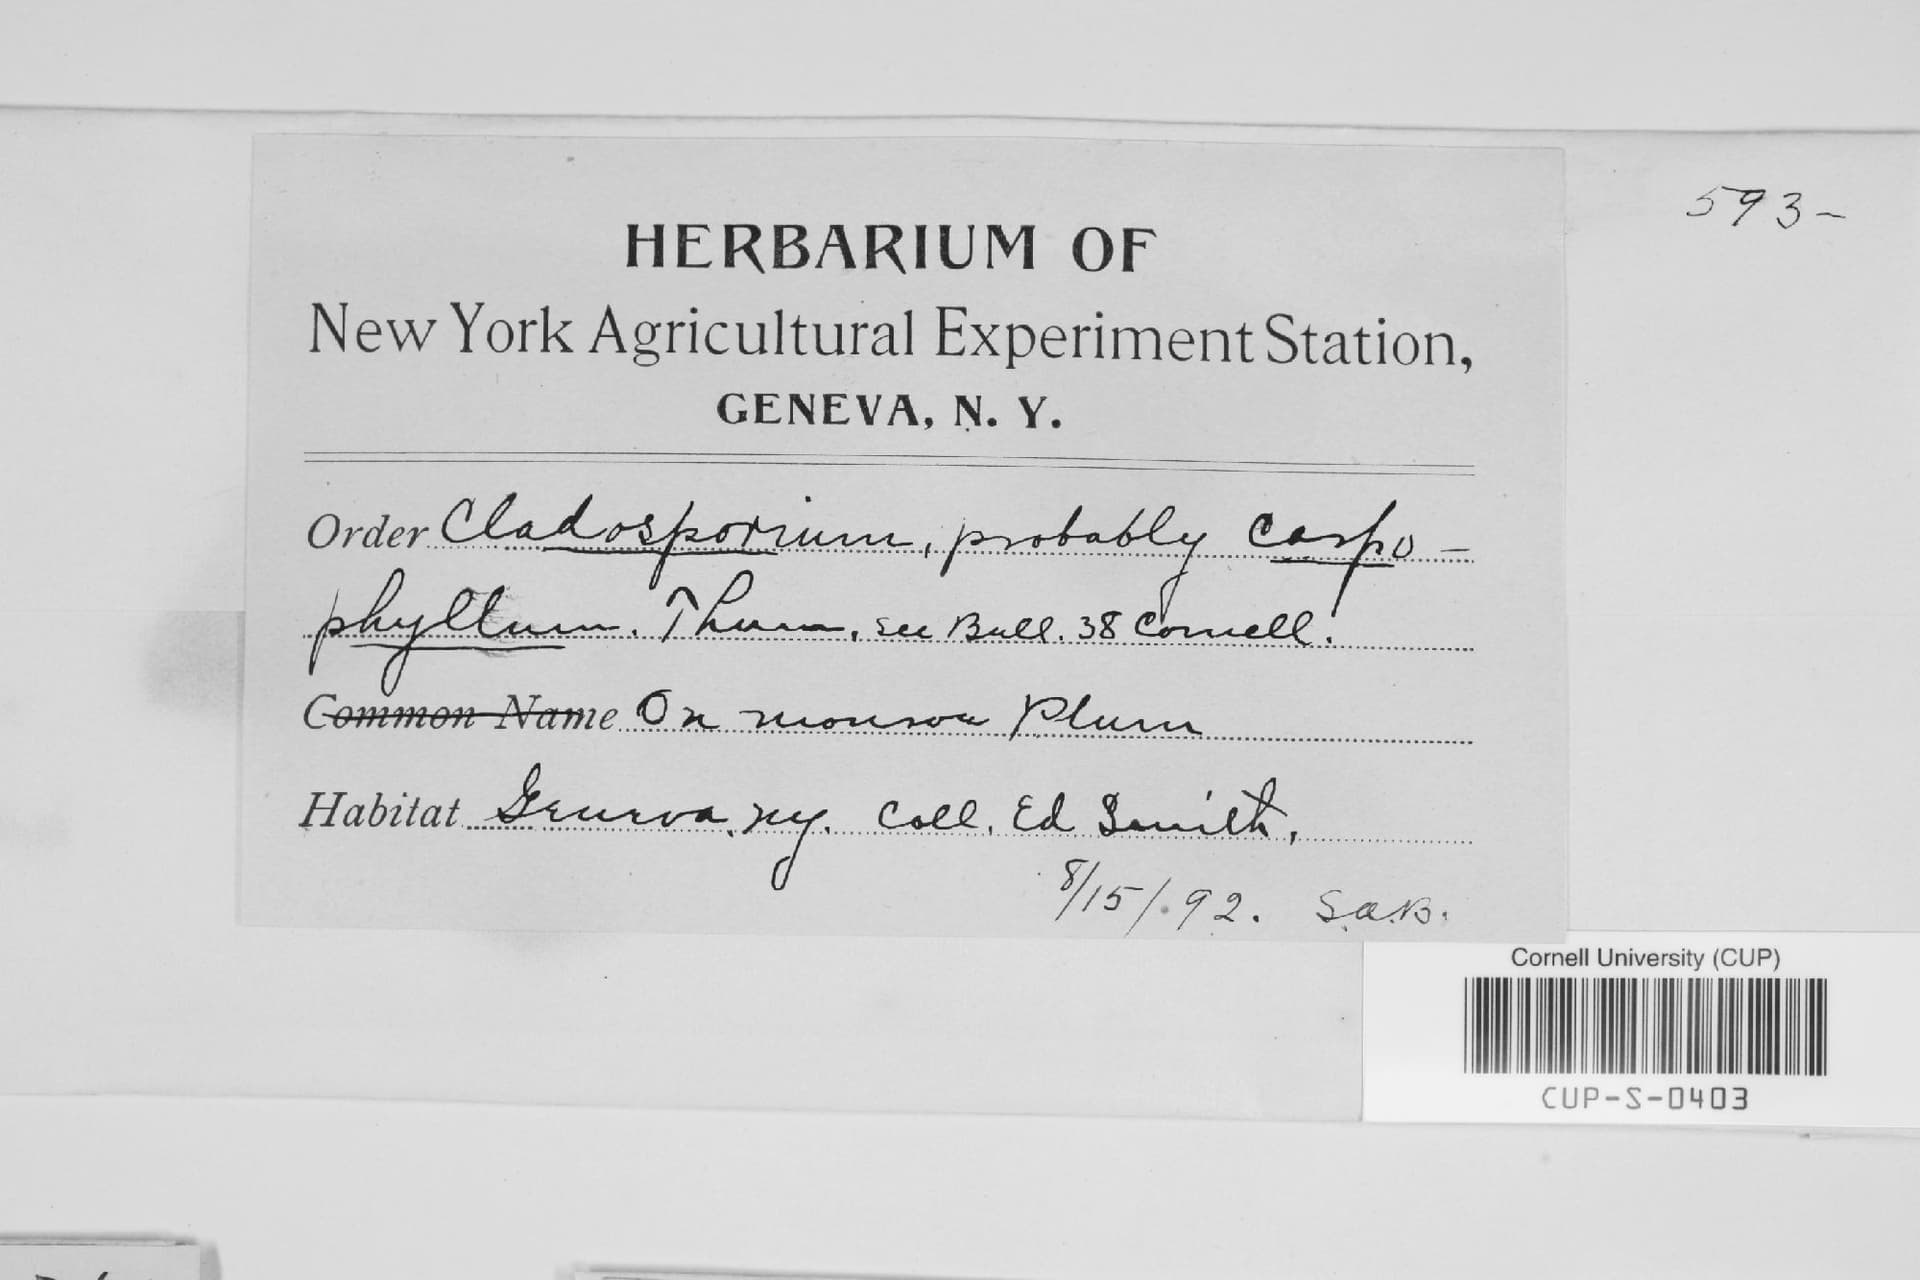 593-
HERBARIUM OF
New York Agricultural Experiment Station,
GENEVA, N. Y.
Order Cladosporium, probably carpo-
phyllum. Thum, see Bull. 38 Cornell.
Common Name On monroe Plum
Habitat Geneva, ny. Coll. Ed Smith,
8/15/.92. S.A.B.
Cornell University (CUP)
CUP-S-0403